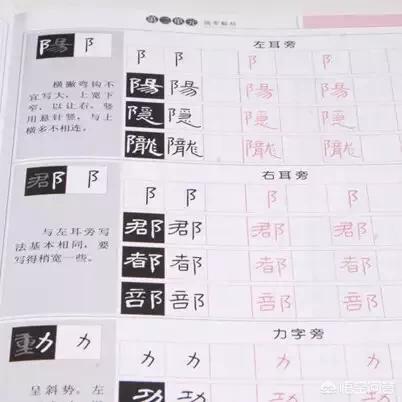 第二单元
陽 阝
左耳旁
横撇弯钩不
宜写大，上宽下
窄，以让右。竖
用悬针竖，与上
横多不相连。
阝 阝 阝 阝
陽 陽 陽 陽
隐 隐 隐 隐
隴 隴 隴 隴
郡 阝
右耳旁
与左耳旁写
法基本相同，要
写得稍宽一些。
阝 阝 阝 阝
郡 郡 郡 郡
都 都 都 都
部 部 部 部
動 力
力字旁
呈斜势。左
力 力 力 力
功 功 功 功
悟空问答